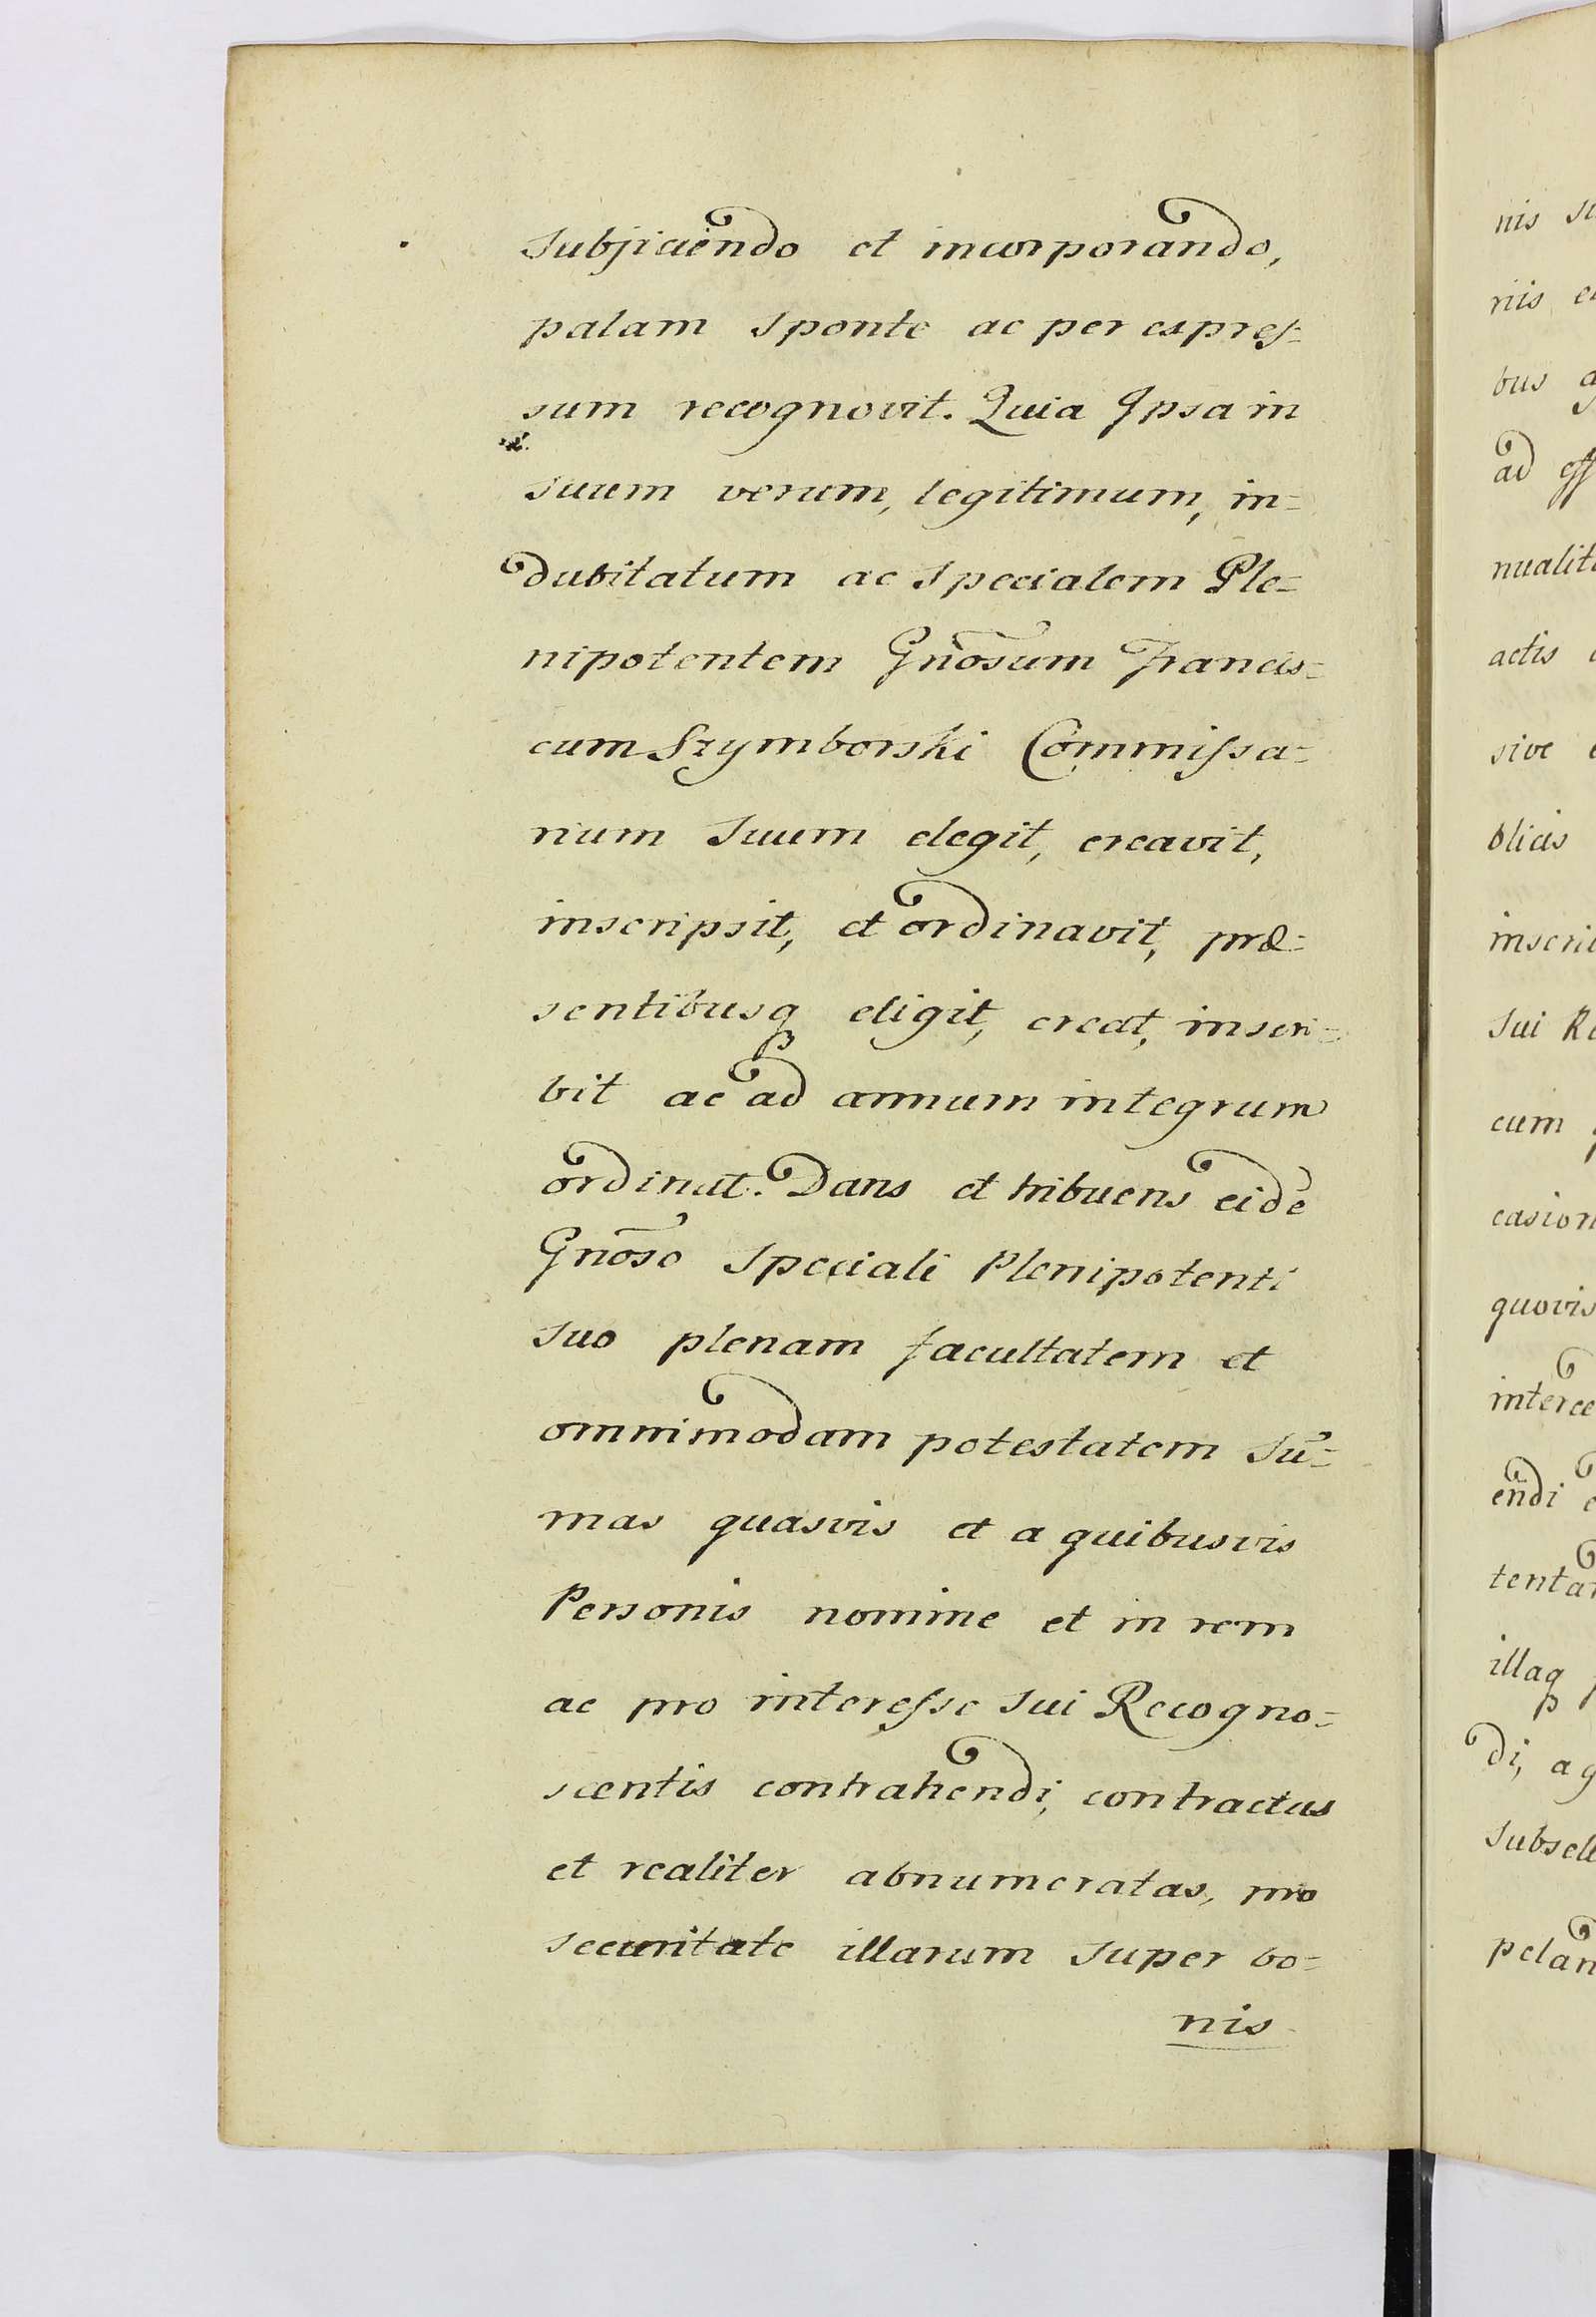 Subjiciendo et incorporando,
palam Sponte ac per expres=
sum recognovit. Quia Ipsa in
suum verum, legitimum, in=
dubitatum ac Specialem Ple=
nipotentem Gnōsum Francis=
cum Szymborski Commissa=
rium Suum elegit, creavit,
inscripsit, et ordinavit, præ=
sentibusq eligit, creat, inscri=
bit ac ad annum integrum
ordinat. Dans et tribuens eidē
Gnōso Speciali Plenipotenti
Suo plenam facultatem et
omnimodam potestatem Sū=
mas quasvis et a quibusvis
Personis nomine et in rem
ac pro interesse Sui Recogno=
scentis contrahendi, contractas
et realiter abnumeratas, pro
securitate illarum Super bo=
nis
nis
riis
bus
ad
nualit
actis
sive
blicis
inscri
Sui
cum
casion
quovis
interce
endi
tenta
illaq
di, a
Subsell
pelan